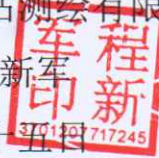 测绘有限
新军
程新
军印
3701207717245
五日